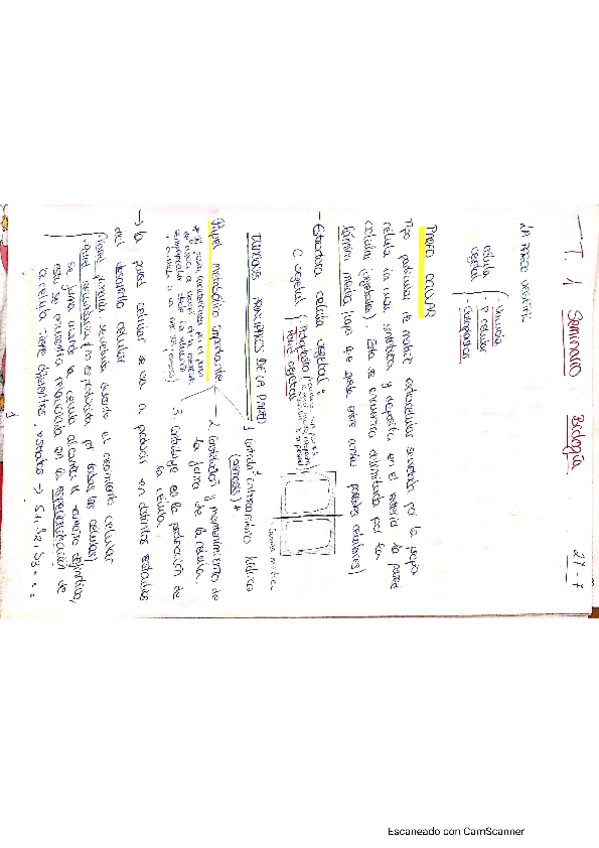 T. 1 Seminario Biología 27-7
LA PARED VEGETAL
célula vegetal
- Vacuola
- P. celular
- Cloroplastos
PARED CELULAR
Tipo particular de matriz extracelular secretada por la propia
célula la cual sintetiza y deposita en el exterior la pared
celular (vegetales). Ésta se encuentra delimitada por la
lámina media (capa que yace entre ambas paredes celulares)
- Estructura célula vegetal:
C. vegetal
Protoplasto
Pared vegetal
lámina media
FUNCIONES PRINCIPALES DE LA PARED
1. Control intercambio hídrico
(osmosis) *
Papel metabólico importante
2. Constitución y mantenimiento de
la forma de la célula.
3. Contribuye en la protección de
la célula.
→ la pared celular se va a producir en distintos estadios
del desarrollo celular
- Pared primaria: secretada durante el crecimiento celular
- Pared secundaria (no es producida por todas las células)
Se forma cuando la célula alcanza el tamaño definitivo,
esta se encuentra relacionada en la especialización de
la célula. Tiene diferentes estratos → S1, S2, S3...
1
Escaneado con CamScanner